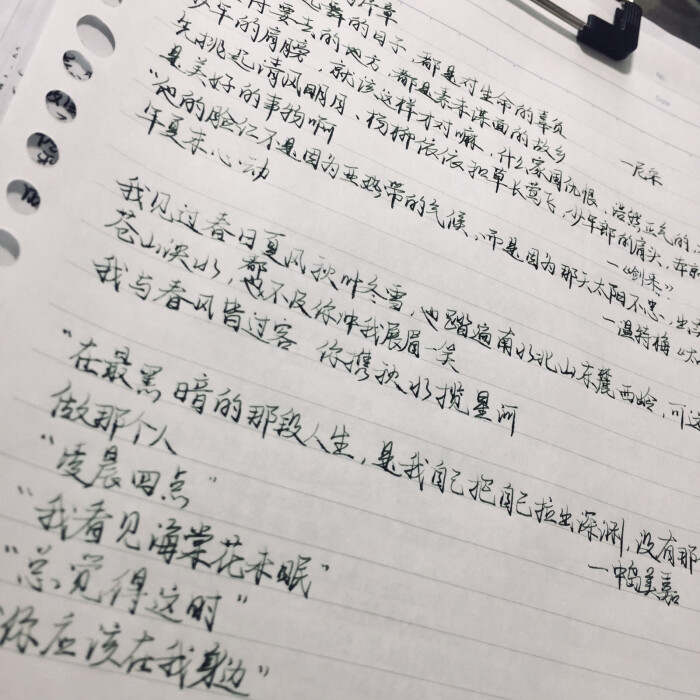 序章
起舞的日子，都是对生命的辜负
要去的地方，都是素未谋面的故乡
—尼采
少年的肩膀，就该这样才对嘛，什么家国仇恨，浩然正气的，
先挑起清风明月、杨柳依依和草长莺飞，少年郎的肩头，
是美好的事物啊
—《剑来》
"她的脸红不是因为亚热带的气候，而是因为那头太阳不忠，
午夏未心动
—温特梅《
我见过春日夏风秋叶冬雪，也踏遍南水北山东麓西岭，可这
苍山泱水，都也不及你冲我展眉一笑
我与春风皆过客 你携秋水揽星河
"在最黑暗的那段人生，是我自己把自己拉出深渊，没有那
做那个人
—中岛美嘉
"凌晨四点"
"我看见海棠花未眠"
"总觉得这时"
你应该在我身边"